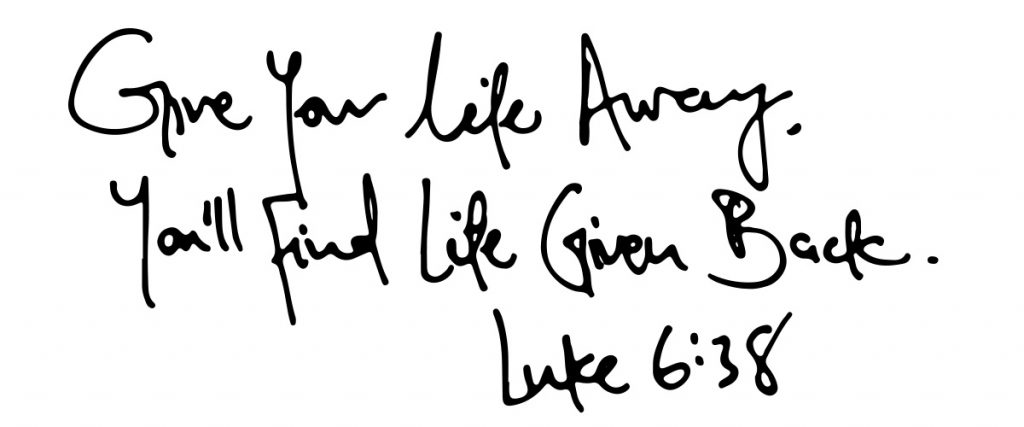 Give Your Life Away.
You'll Find Life Given Back.
Luke 6:38